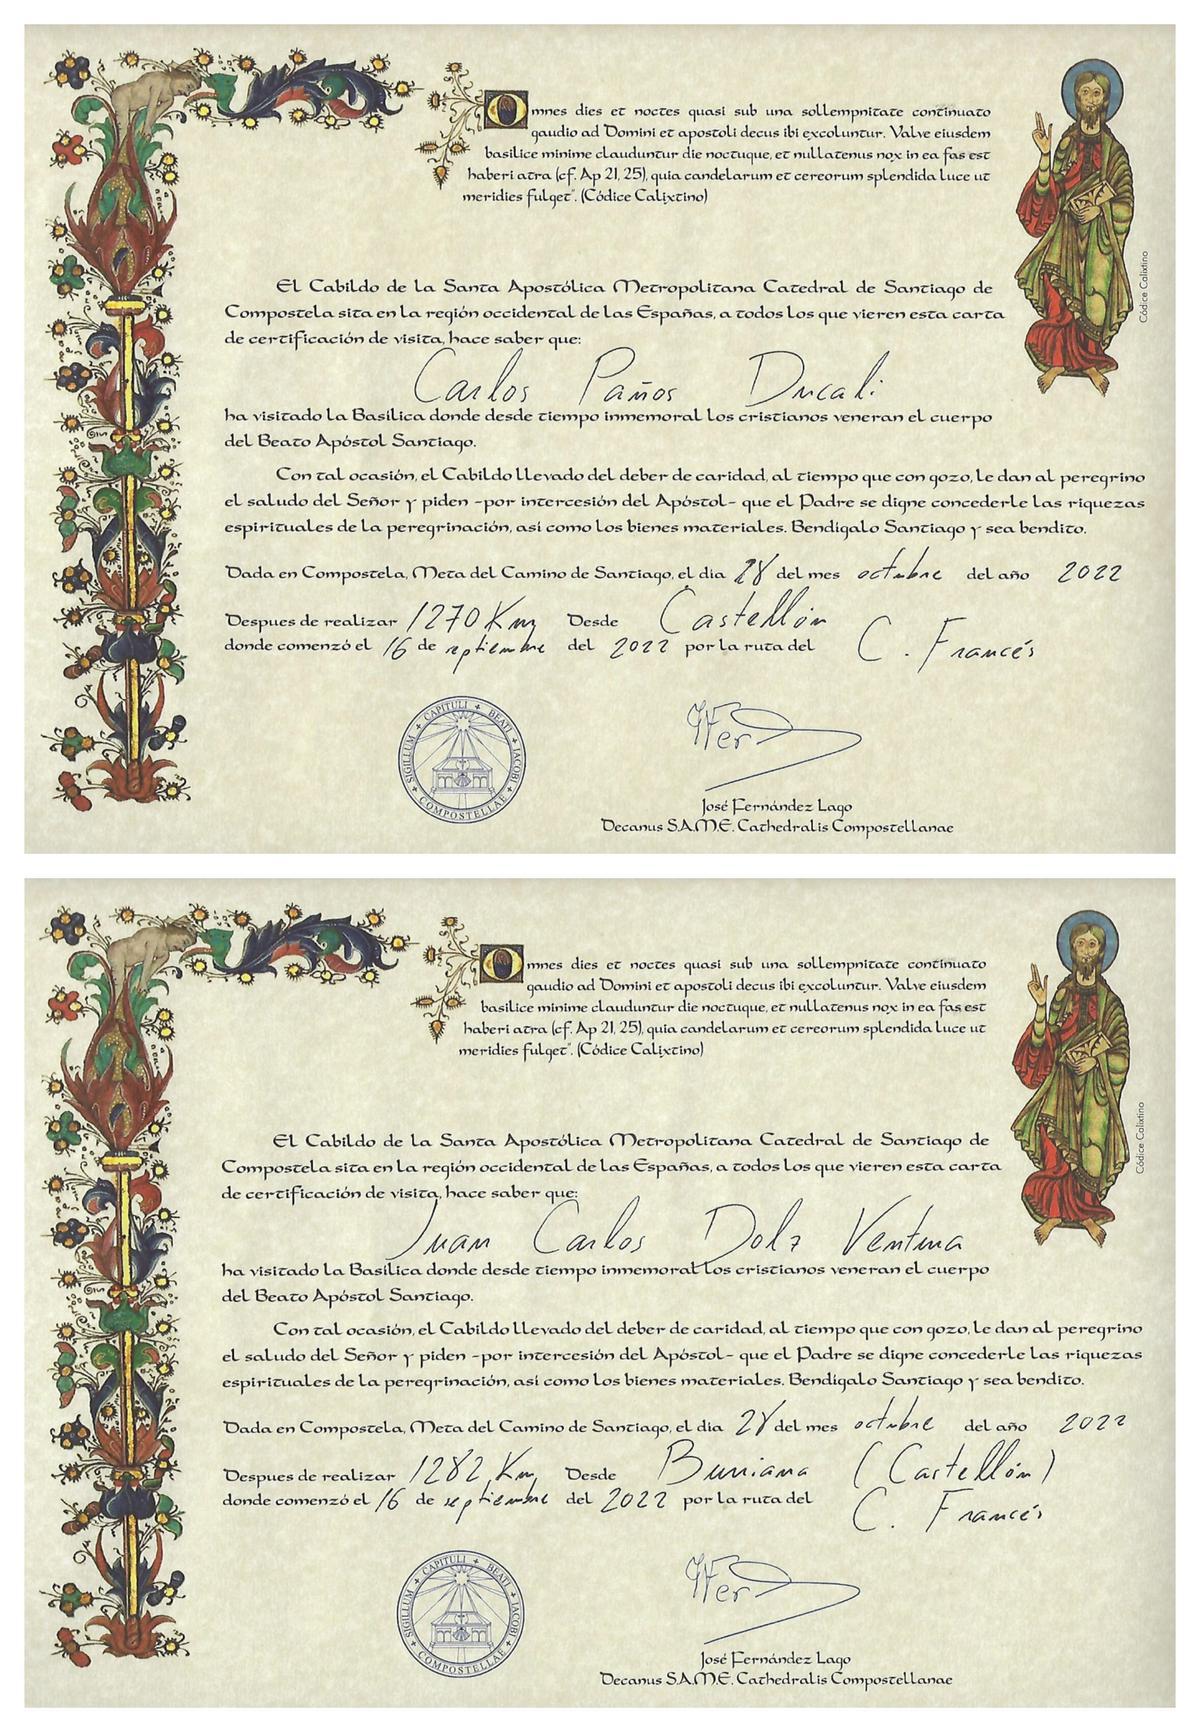 Omnes dies et noctes quasi sub una sollempnitate continuato
gaudio ad Domini et apostoli decus ibi excoluntur. Valve eiusdem
basilice minime clauduntur die noctuque, et nullatenus nox in ea fas est
haberi atra (cf. Ap 21, 25), quia candelarum et cereorum splendida luce ut
meridies fulget". (Códice Calixtino)
Códice Calixtino
El Cabildo de la Santa Apostólica Metropolitana Catedral de Santiago de
Compostela sita en la región occidental de las Españas, a todos los que vieren esta carta
de certificación de visita, hace saber que:
Carlos Paños Ducali
ha visitado la Basílica donde desde tiempo inmemorial los cristianos veneran el cuerpo
del Beato Apóstol Santiago.
Con tal ocasión, el Cabildo llevado del deber de caridad, al tiempo que con gozo, le dan al peregrino
el saludo del Señor y piden -por intercesión del Apóstol- que el Padre se digne concederle las riquezas
espirituales de la peregrinación, así como los bienes materiales. Bendígalo Santiago y sea bendito.
Dada en Compostela, Meta del Camino de Santiago, el dia 28 del mes octubre del año 2022
Despues de realizar 1270 Km Desde Castellón
donde comenzó el 16 de septiembre del 2022 por la ruta del C. Francés
SIGILLUM + CAPITULI + BEATI + IACOBI + COMPOSTELLAE +
JFer
José Fernández Lago
Decanus S.A.M.E. Cathedralis Compostellanae
Omnes dies et noctes quasi sub una sollempnitate continuato
gaudio ad Domini et apostoli decus ibi excoluntur. Valve eiusdem
basilice minime clauduntur die noctuque, et nullatenus nox in ea fas est
haberi atra (cf. Ap 21, 25), quia candelarum et cereorum splendida luce ut
meridies fulget". (Códice Calixtino)
Códice Calixtino
El Cabildo de la Santa Apostólica Metropolitana Catedral de Santiago de
Compostela sita en la región occidental de las Españas, a todos los que vieren esta carta
de certificación de visita, hace saber que:
Juan Carlos Dolz Ventura
ha visitado la Basílica donde desde tiempo inmemorial los cristianos veneran el cuerpo
del Beato Apóstol Santiago.
Con tal ocasión, el Cabildo llevado del deber de caridad, al tiempo que con gozo, le dan al peregrino
el saludo del Señor y piden -por intercesión del Apóstol- que el Padre se digne concederle las riquezas
espirituales de la peregrinación, así como los bienes materiales. Bendígalo Santiago y sea bendito.
Dada en Compostela, Meta del Camino de Santiago, el dia 28 del mes octubre del año 2022
Despues de realizar 1282 Km Desde Burriana (Castellón)
donde comenzó el 16 de septiembre del 2022 por la ruta del C. Francés
SIGILLUM + CAPITULI + BEATI + IACOBI + COMPOSTELLAE +
JFer
José Fernández Lago
Decanus S.A.M.E. Cathedralis Compostellanae